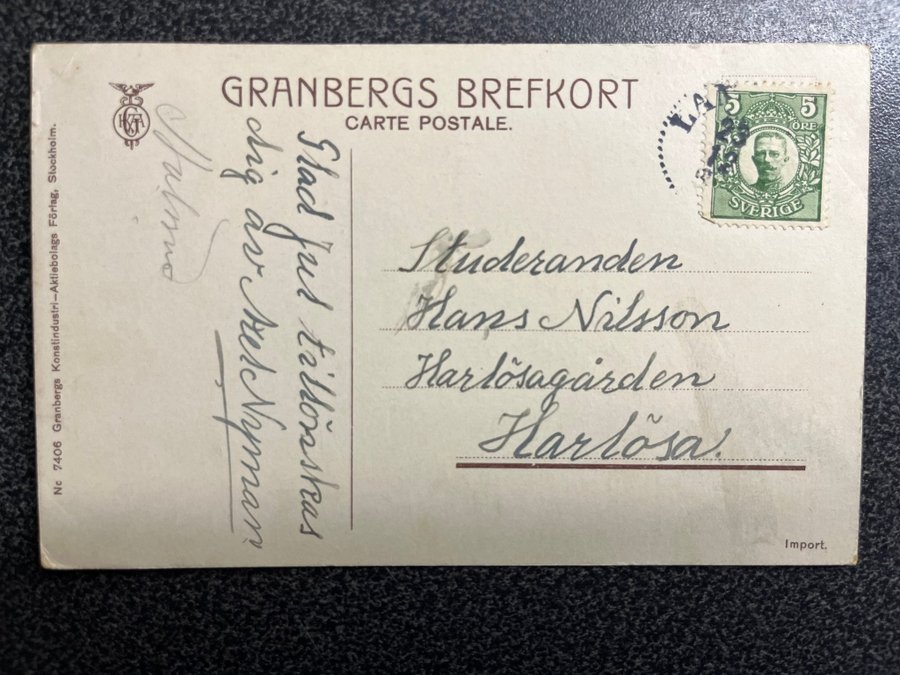 GRANBERGS BREFKORT
CARTE POSTALE.
5 5
ÖRE
SVERIGE
Glad Jul tillönskas
dig av Axel Nyman.
Studeranden
Hans Nilsson
Harlösagården
Harlösa.
Import.
No 7406 Granbergs Konstindustri-Aktiebolags Förlag, Stockholm.